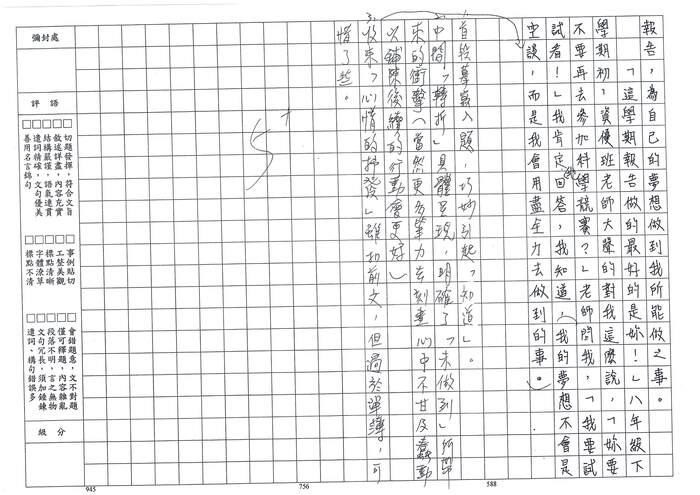 報告，為自己的夢想做到我所能做之事。
「這學期報告做的最好的是妳！」八年級下
學期初，資優班老師大聲的對我這麼說，「妳要
不要再去參加科學競賽？」老師問我，「我要試
試看！」我肯定的回答。我知道，我的夢想，不會是
空談，而是我會用盡全力去做到的事。
首段摹寫入題，巧妙引起「知道」。
中間「轉折」具體呈現，明確了「未做到」所帶
來的衝擊（當然更多筆力去刻畫心中不甘及蠢動
以鋪陳後續的行動會更好）
收束「心情的抒發」雖切前文，但過於單薄，可
惜了些。
5+
彌封處
評語
□切題發揮，符合文旨
□敘述詳盡，內容充實
□結構嚴謹，語氣連貫
□遣詞精確，文句優美
□善用名言錦句
□事例貼切
□工整美觀
□標點清晰
□字體潦草
□標點不清
□會錯題意，文不對題
□僅可釋題，內容雜亂
□段落不明，言之無物
□文句冗長，須加錘鍊
□遣詞、構句錯誤多
級分
945
756
588